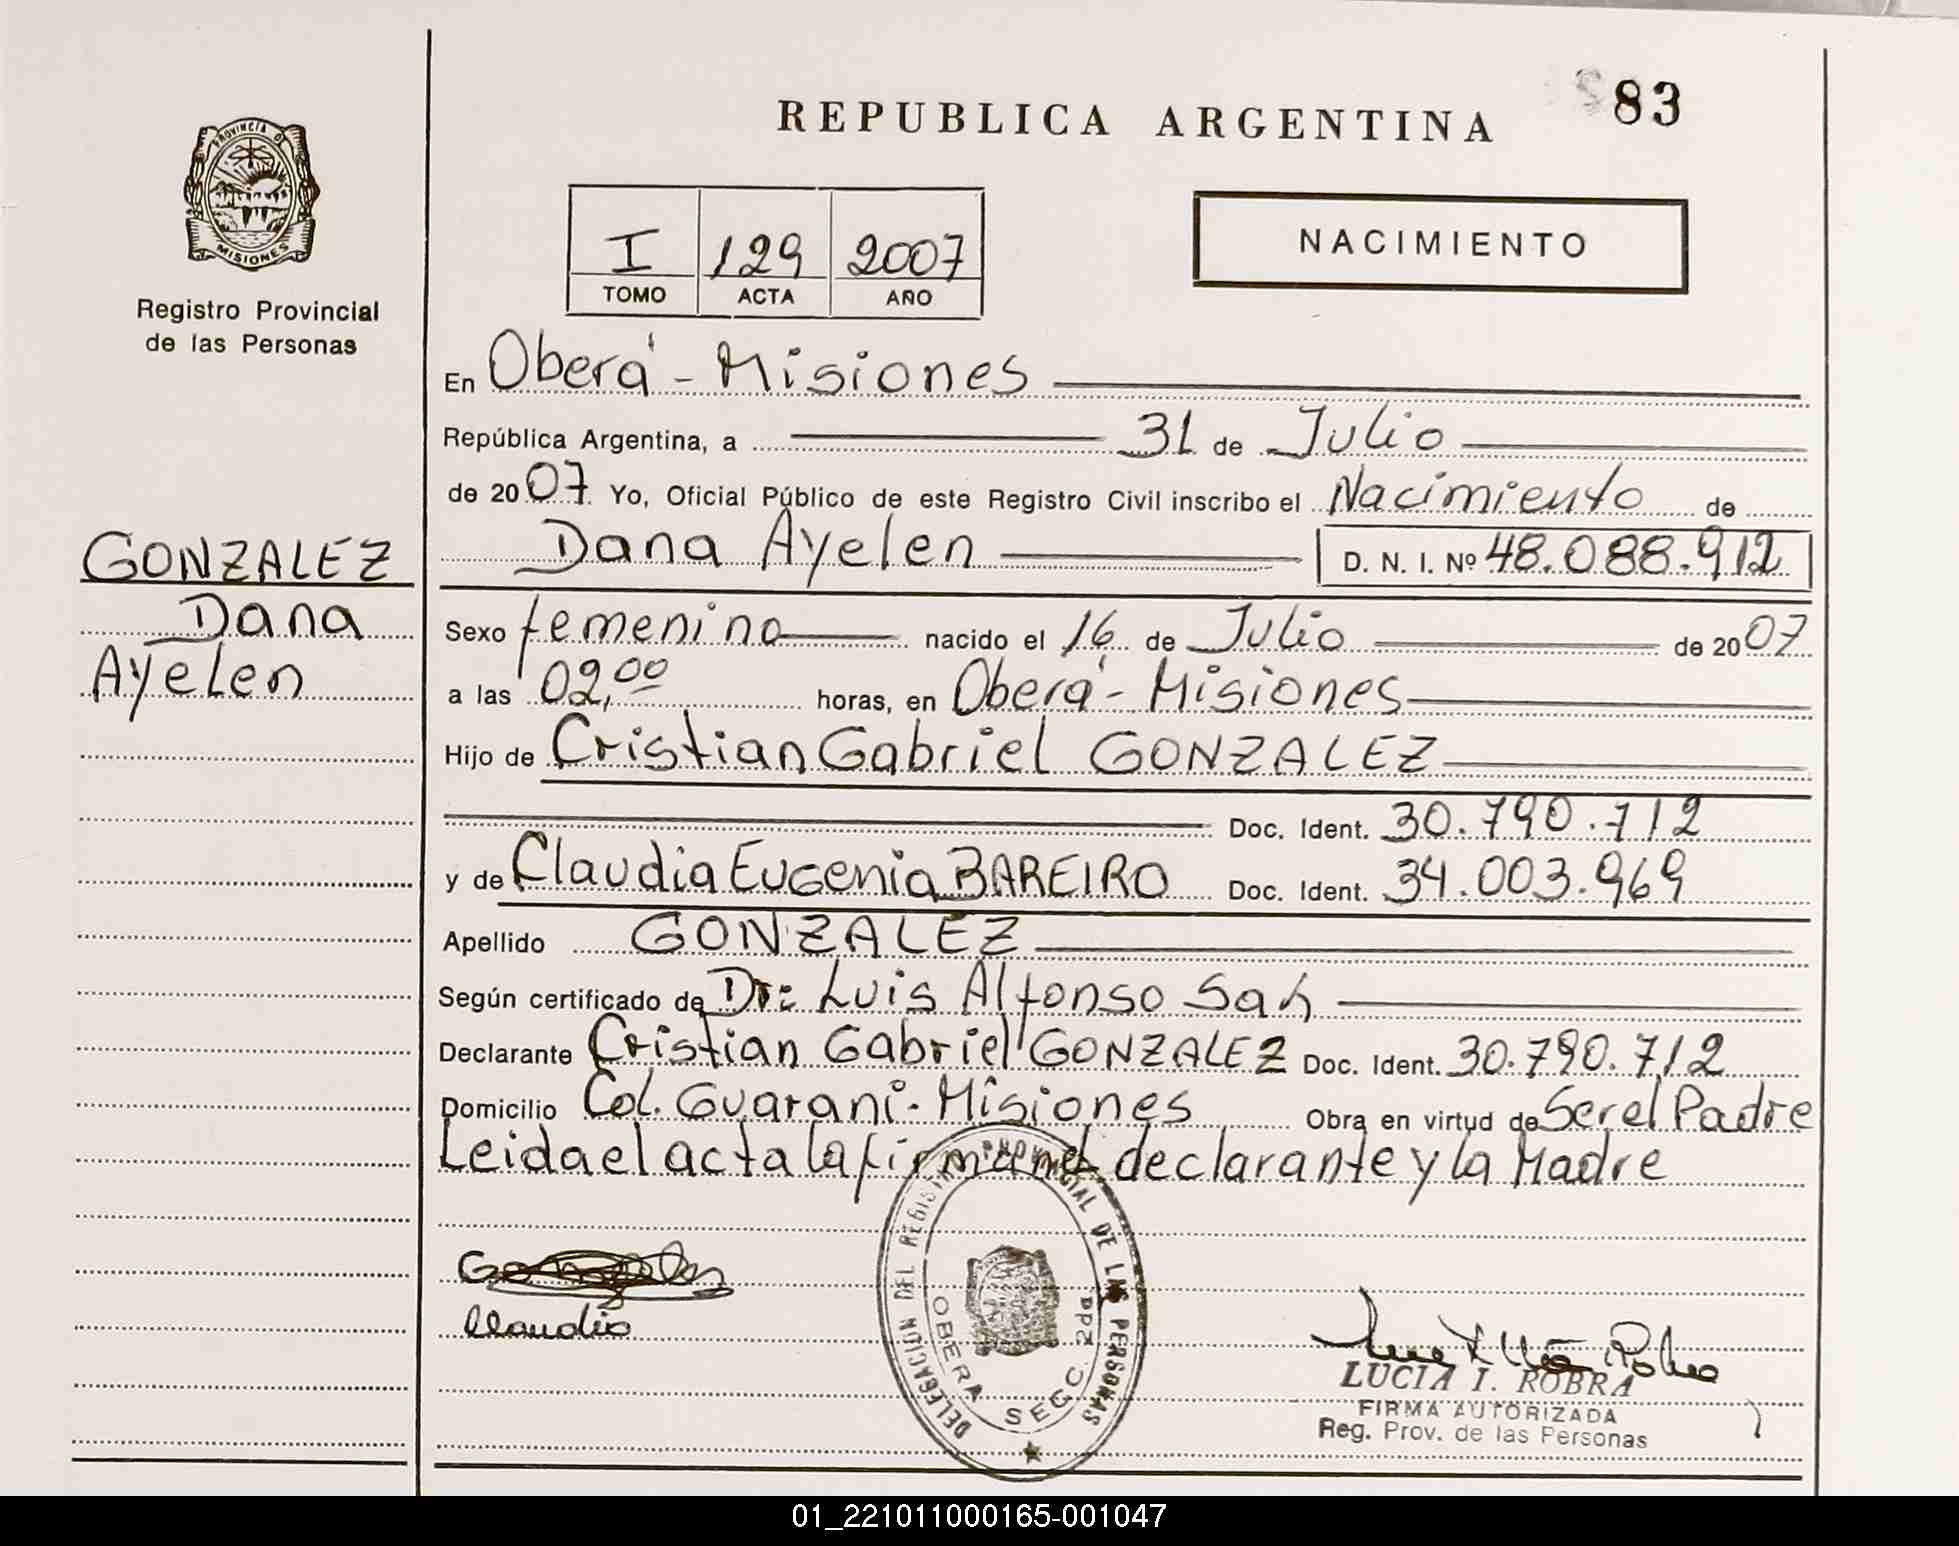 REPUBLICA ARGENTINA
83
PROVINCIA DE
MISIONES
Registro Provincial
de las Personas
I 129 2007
TOMO ACTA AÑO
NACIMIENTO
En Oberá - Misiones
República Argentina, a 31 de Julio
de 2007 Yo, Oficial Público de este Registro Civil inscribo el Nacimiento de
Dana Ayelen D. N. I. Nº 48.088.912
GONZALEZ
Dana
Ayelen
Sexo femenino nacido el 16 de Julio de 2007
a las 02,00 horas, en Oberá - Misiones
Hijo de Cristian Gabriel GONZALEZ
Doc. Ident. 30.790.712
y de Claudia Eugenia BAREIRO Doc. Ident. 34.003.969
Apellido GONZALEZ
Según certificado de Dr: Luis Alfonso Sah
Declarante Cristian Gabriel GONZALEZ Doc. Ident. 30.790.712
Domicilio Col. Guaraní - Misiones Obra en virtud de Ser el Padre
Leida el acta la firman el declarante y la Madre
DELEGACION DEL REGISTRO PROVINCIAL DE LAS PERSONAS
OBERA SECC.
Claudia
LUCIA I. ROBRA
FIRMA AUTORIZADA
Reg. Prov. de las Personas
01_221011000165-001047